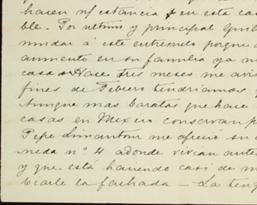 hacen n/ estancia en este ca
ble. Por ultimo y principal Guill
mudar á este entresuelo porque
aumento en su familia ya no
casa. Hace tres meses me avis
fines de Febrero tendriamos
Aunque mas baratas que hace
casas en Mexico conservan p
Pepe Limantour me ofreció su
neda nº 4 adonde vivian antes
y que está haciendo casi de
biarle la fachada — La teng